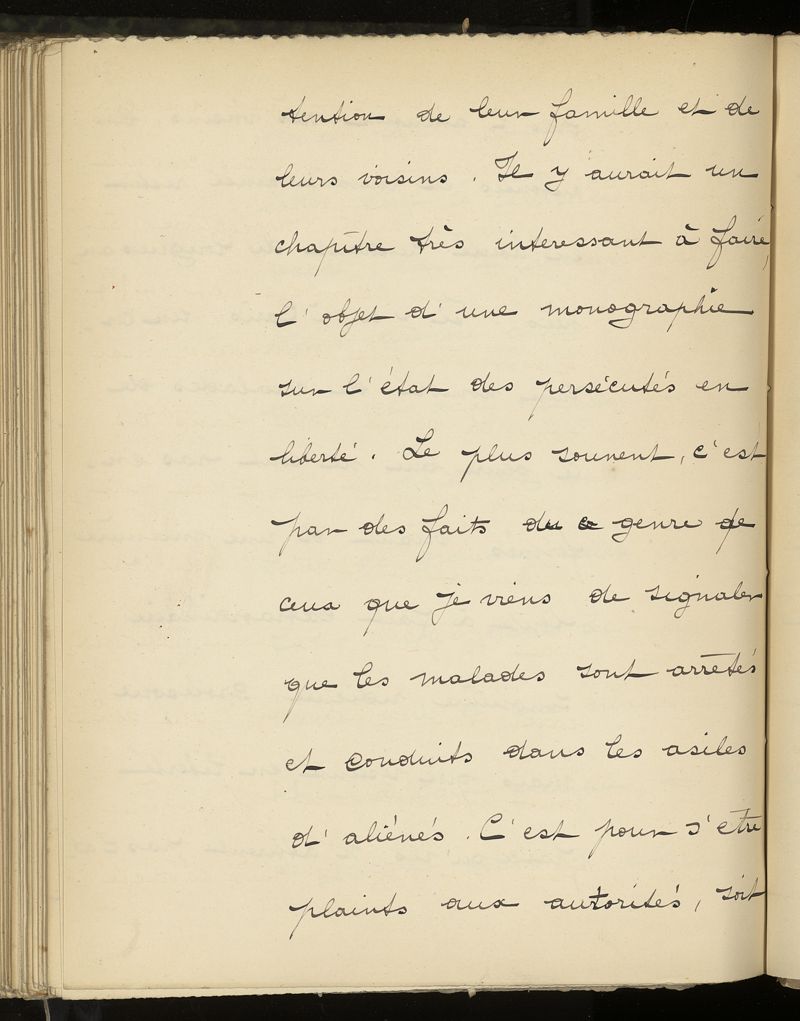 tention de leur famille et de
leurs voisins. Il y aurait un
chapitre très interessant à faire,
l'objet d'une monographie
sur l'état des persécutés en
liberté. Le plus souvent, c'est
par des faits du genre de
ceux que je viens de signaler
que les malades sont arrêtés
et conduits dans les asiles
d'aliénés. C'est pour s'etre
plaints aux autorités, soit